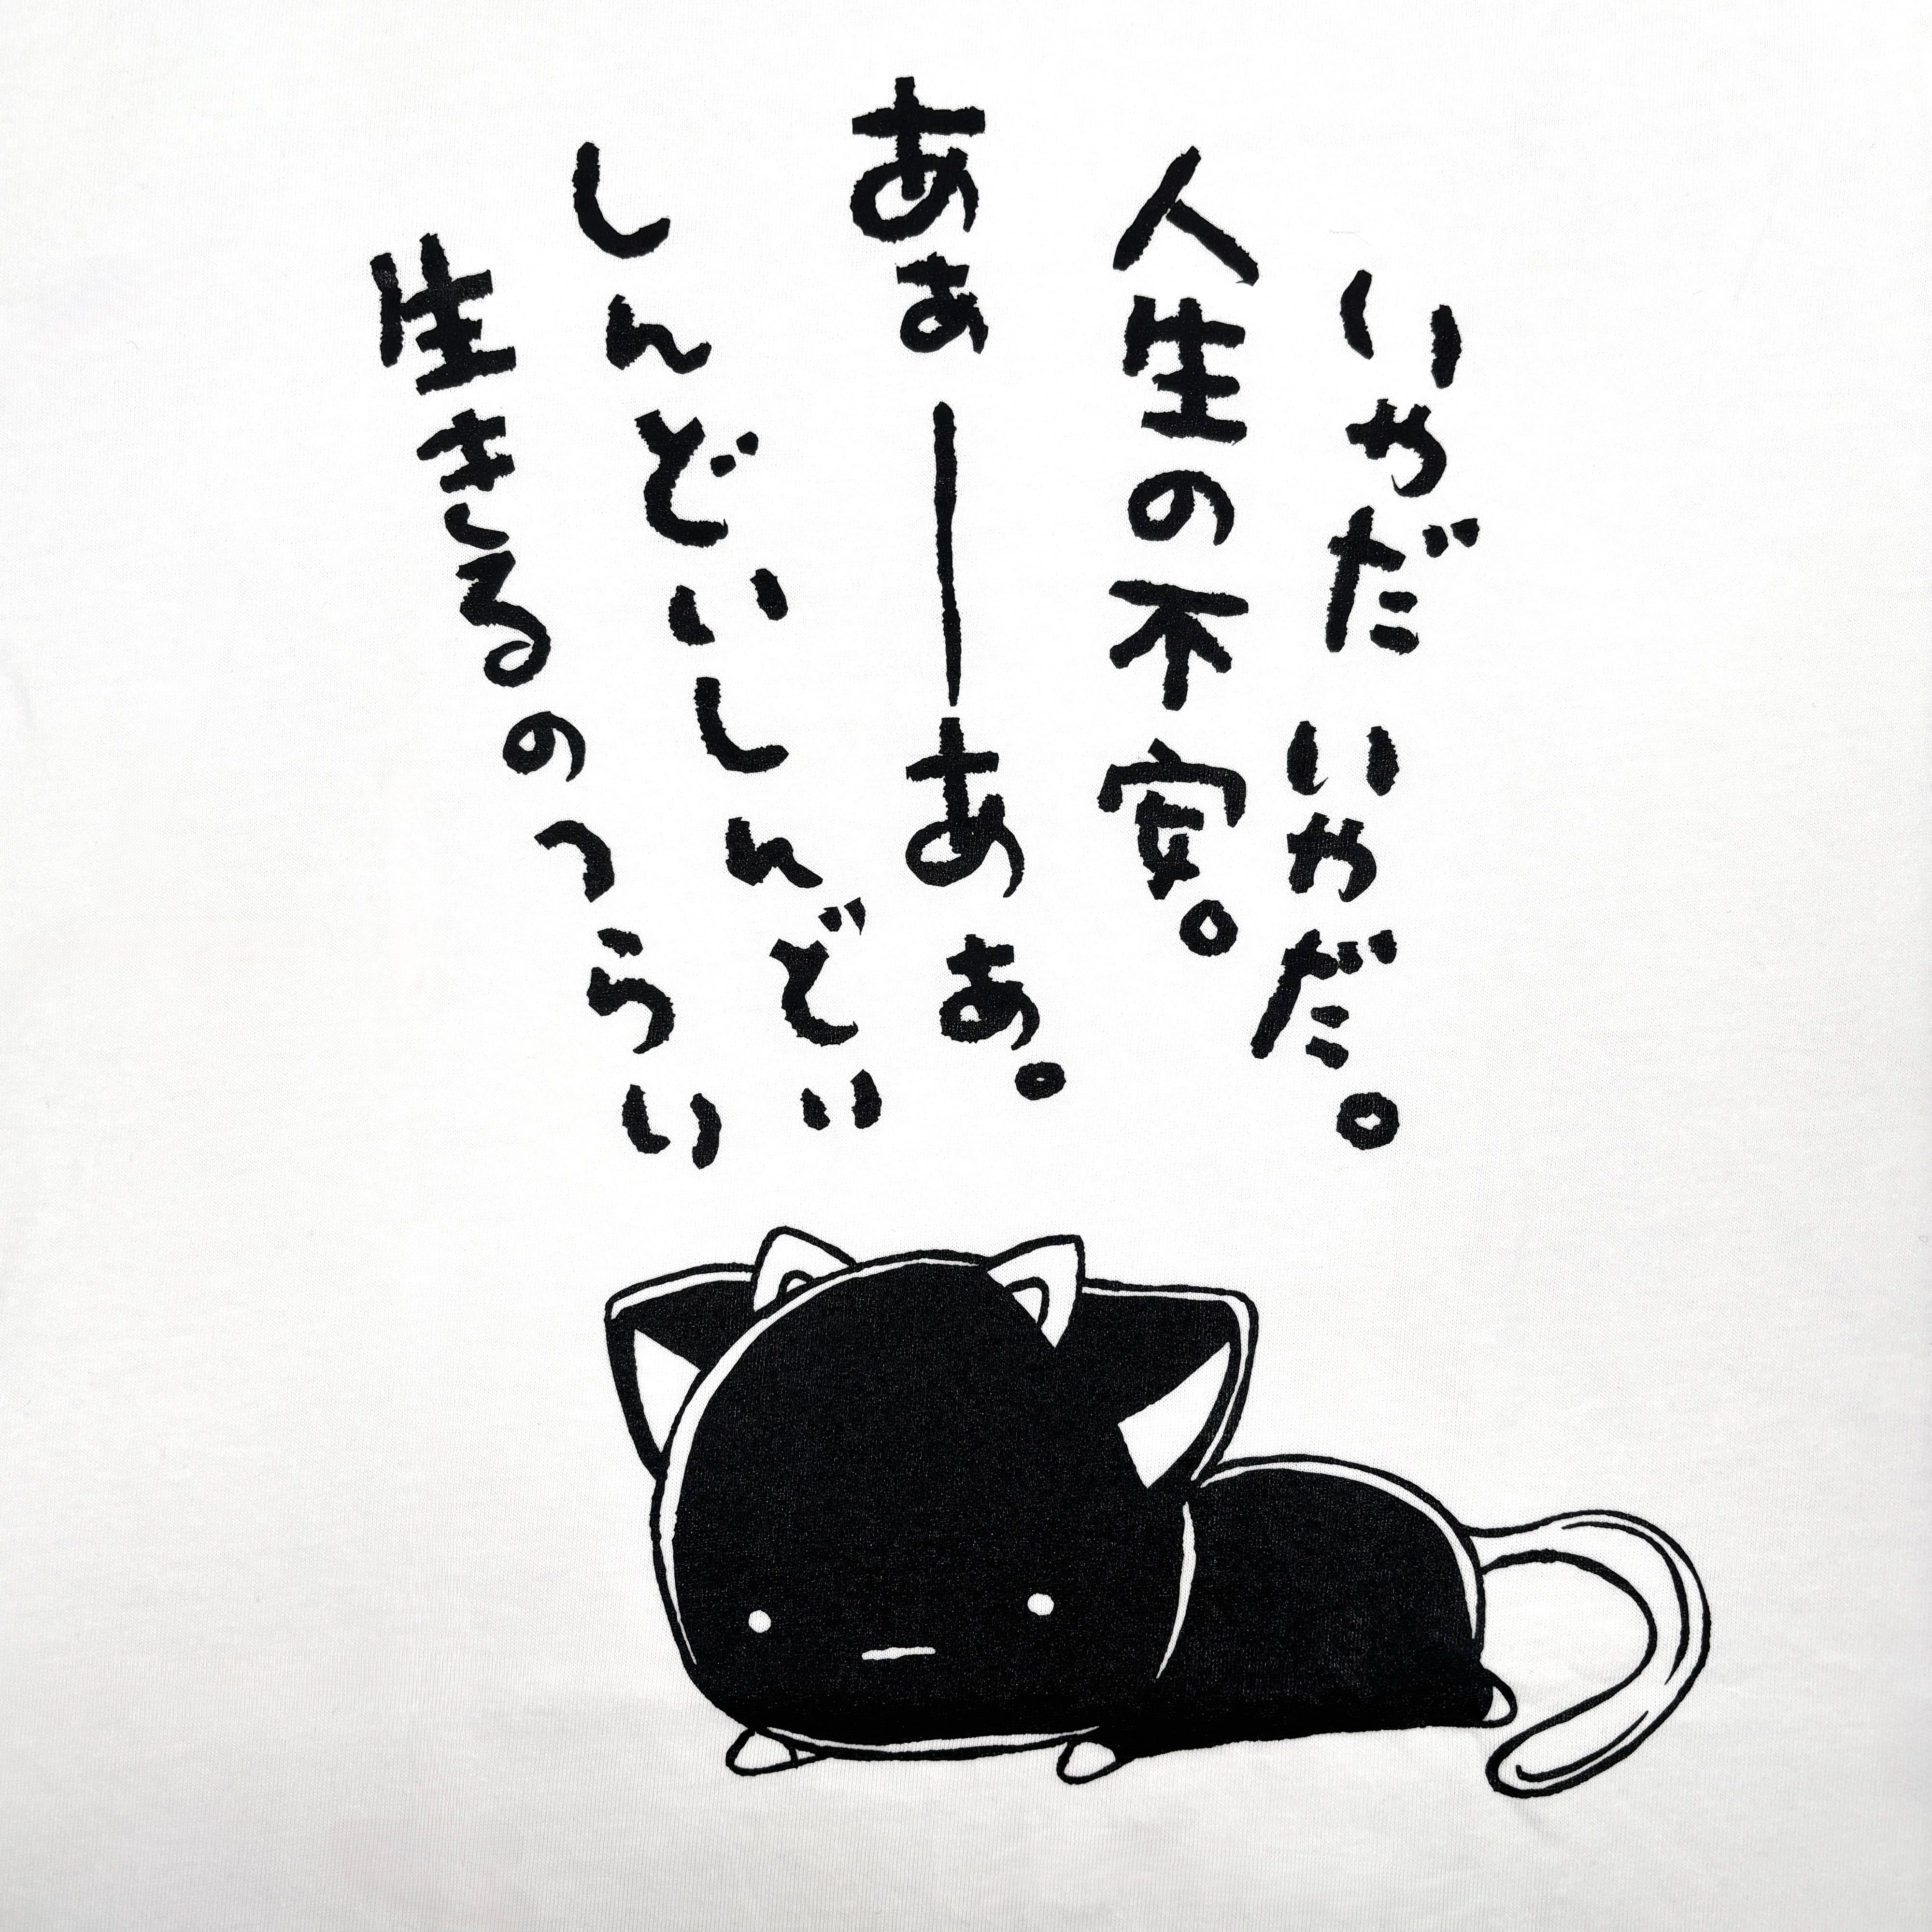 いやだいやだ。
人生の不安。
あぁーあぁ。
しんどいしんどい
生きるのつらい